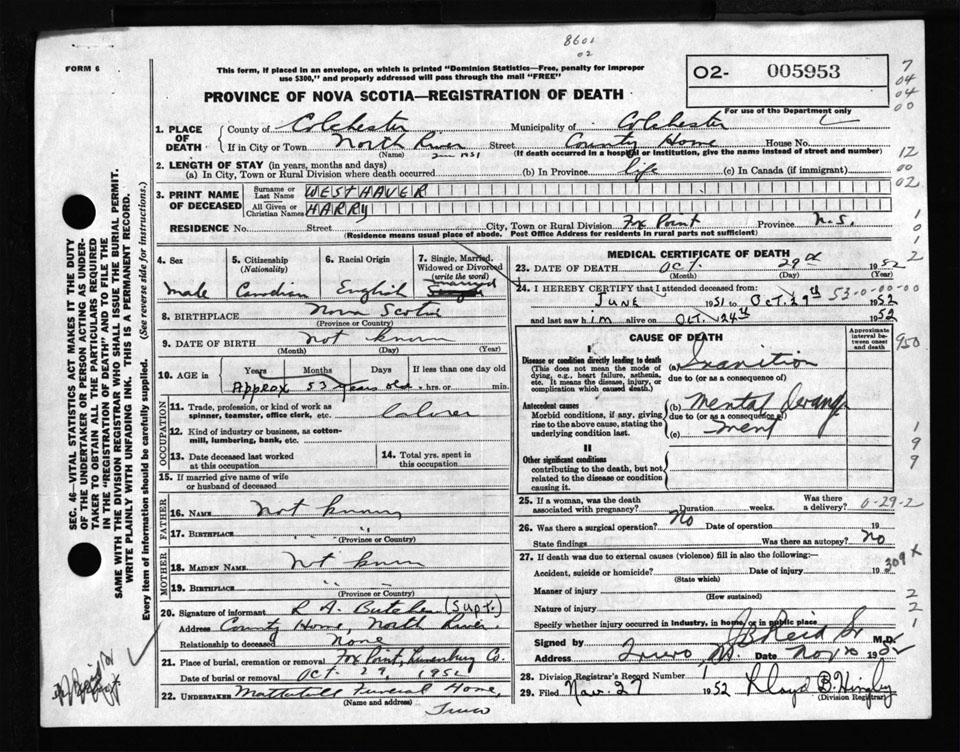 8601
02
FORM 6
This form, if placed in an envelope, on which is printed "Dominion Statistics—Free, penalty for improper use $300," and properly addressed will pass through the mail "FREE"
O2- 005953
For use of the Department only
PROVINCE OF NOVA SCOTIA—REGISTRATION OF DEATH
7
04
04
00
12
00
02
1. PLACE OF DEATH
County of Colchester Municipality of Colchester
If in City or Town North River Street County Home House No.
(Name) June 1951 (If death occurred in a hospital or institution, give the name instead of street and number)
2. LENGTH OF STAY (in years, months and days)
(a) In City, Town or Rural Division where death occurred (b) In Province life (c) In Canada (if immigrant)
3. PRINT NAME OF DECEASED
Surname or Last Name WESTHAVER
All Given or Christian Names HARRY
RESIDENCE No. Street City, Town or Rural Division Fox Point Province N.S.
(Residence means usual place of abode. Post Office Address for residents in rural parts not sufficient)
4. Sex Male
5. Citizenship (Nationality) Canadian
6. Racial Origin English
7. Single, Married, Widowed or Divorced (write the word) married
8. BIRTHPLACE Nova Scotia
(Province or Country)
9. DATE OF BIRTH not known
(Month) (Day) (Year)
10. AGE in Years Months Days If less than one day old
Approx 53 years old hrs. or min.
OCCUPATION
11. Trade, profession, or kind of work as spinner, teamster, office clerk, etc. labourer
12. Kind of industry or business, as cotton-mill, lumbering, bank, etc.
13. Date deceased last worked at this occupation
14. Total yrs. spent in this occupation
15. If married give name of wife or husband of deceased
FATHER
16. NAME Not known
17. BIRTHPLACE " "
(Province or Country)
MOTHER
18. MAIDEN NAME Not known
19. BIRTHPLACE " "
(Province or Country)
20. Signature of informant R A. Butcher (Supt.)
Address County Home, North River
Relationship to deceased None
21. Place of burial, cremation or removal Fox Point, Lunenburg Co.
Date of burial or removal Oct. 29, 1952
22. UNDERTAKER Mattatall Funeral Home,
(Name and address)
Truro
MEDICAL CERTIFICATE OF DEATH
23. DATE OF DEATH Oct. 29th 1952
(Month) (Day) (Year)
24. I HEREBY CERTIFY that I attended deceased from:
JUNE 1951 to Oct. 29th 1952
53-0-00-00
and last saw him alive on OCT. 24th 1952
CAUSE OF DEATH
Approximate interval between onset and death
I
Disease or condition directly leading to death
(This does not mean the mode of dying, e.g., heart failure, asthenia, etc. It means the disease, injury, or complication which caused death.)
(a) Inanition
due to (or as a consequence of)
Antecedent causes
Morbid conditions, if any, giving rise to the above cause, stating the underlying condition last.
(b) Mental Derange
due to (or as a consequence of)
(c) ment
II
Other significant conditions
contributing to the death, but not related to the disease or condition causing it.
25. If a woman, was the death associated with pregnancy? Duration weeks. Was there a delivery?
26. Was there a surgical operation? No Date of operation 19
State findings Was there an autopsy? No
27. If death was due to external causes (violence) fill in also the following:
Accident, suicide or homicide? Date of injury 19
(State which)
Manner of injury
(How sustained)
Nature of injury
Specify whether injury occurred in industry, in home, or in public place
Signed by J B Reid Sr M.D.
Address Truro Date Nov 1952
28. Division Registrar's Record Number
29. Filed Nov. 27 1952 Lloyd B. Hingley
(Division Registrar)
1
0
1
2
950
1
9
9
0-29-2
309 x
2
2
1
SEC. 46—VITAL STATISTICS ACT MAKES IT THE DUTY OF THE UNDERTAKER OR PERSON ACTING AS UNDERTAKER TO OBTAIN ALL THE PARTICULARS REQUIRED IN THE "REGISTRATION OF DEATH" AND TO FILE THE SAME WITH THE DIVISION REGISTRAR WHO SHALL ISSUE THE BURIAL PERMIT.
WRITE PLAINLY WITH UNFADING INK. THIS IS A PERMANENT RECORD.
Every item of information should be carefully supplied. (See reverse side for instructions.)